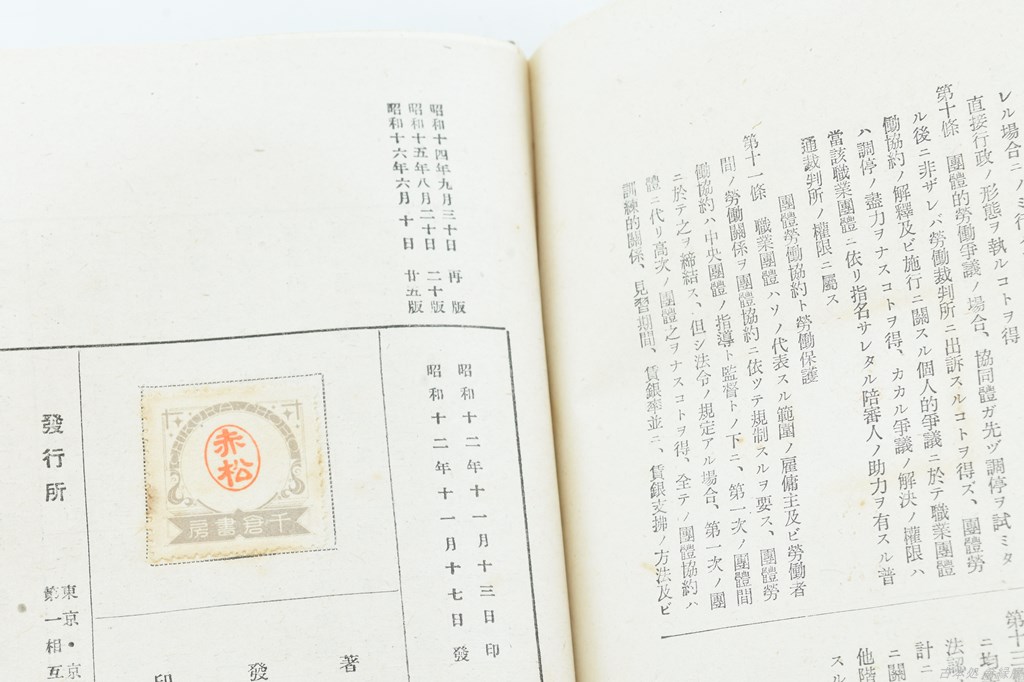 レル場合ニノミ行
直接行政ノ形態ヲ執ルコトヲ得
第十條 團體的勞働爭議ノ場合、協同體ガ先ヅ調停ヲ試ミタ
ル後ニ非ザレバ勞働裁判所ニ出訴スルコトヲ得ズ、團體勞
働協約ノ解釋及ビ施行ニ關スル個人的爭議ニ於テ職業團體
ハ調停ノ盡力ヲナスコトヲ得、カカル爭議ノ解決ノ權限ハ
當該職業團體ニ依リ指名サレタル陪審人ノ助力ヲ有スル普
通裁判所ノ權限ニ屬ス
團體勞働協約ト勞働保護
第十一條 職業團體ハソノ代表スル範圍ノ雇傭主及ビ勞働者
間ノ勞働關係ヲ團體協約ニ依ツテ規制スルヲ要ス、團體勞
働協約ハ中央團體ノ指導ト監督トノ下ニ、第一次ノ團體間
ニ於テ之ヲ締結ス、但シ法令ノ規定アル場合、第一次ノ團
體ニ代リ高次ノ團體之ヲナスコトヲ得、全テノ團體協約ハ
訓練的關係、見習期間、賃銀率並ニ、賃銀支拂ノ方法及ビ
第十三
ニ均
法認
計ニ
ニ關
他階
スル
昭和十四年九月三十日 再版
昭和十五年八月二十日 二十版
昭和十六年六月十日 廿五版
昭和十二年十一月十三日印
昭和十二年十一月十七日發
著
發
印
赤松
千倉書房
發行所
東京・京
第一相互